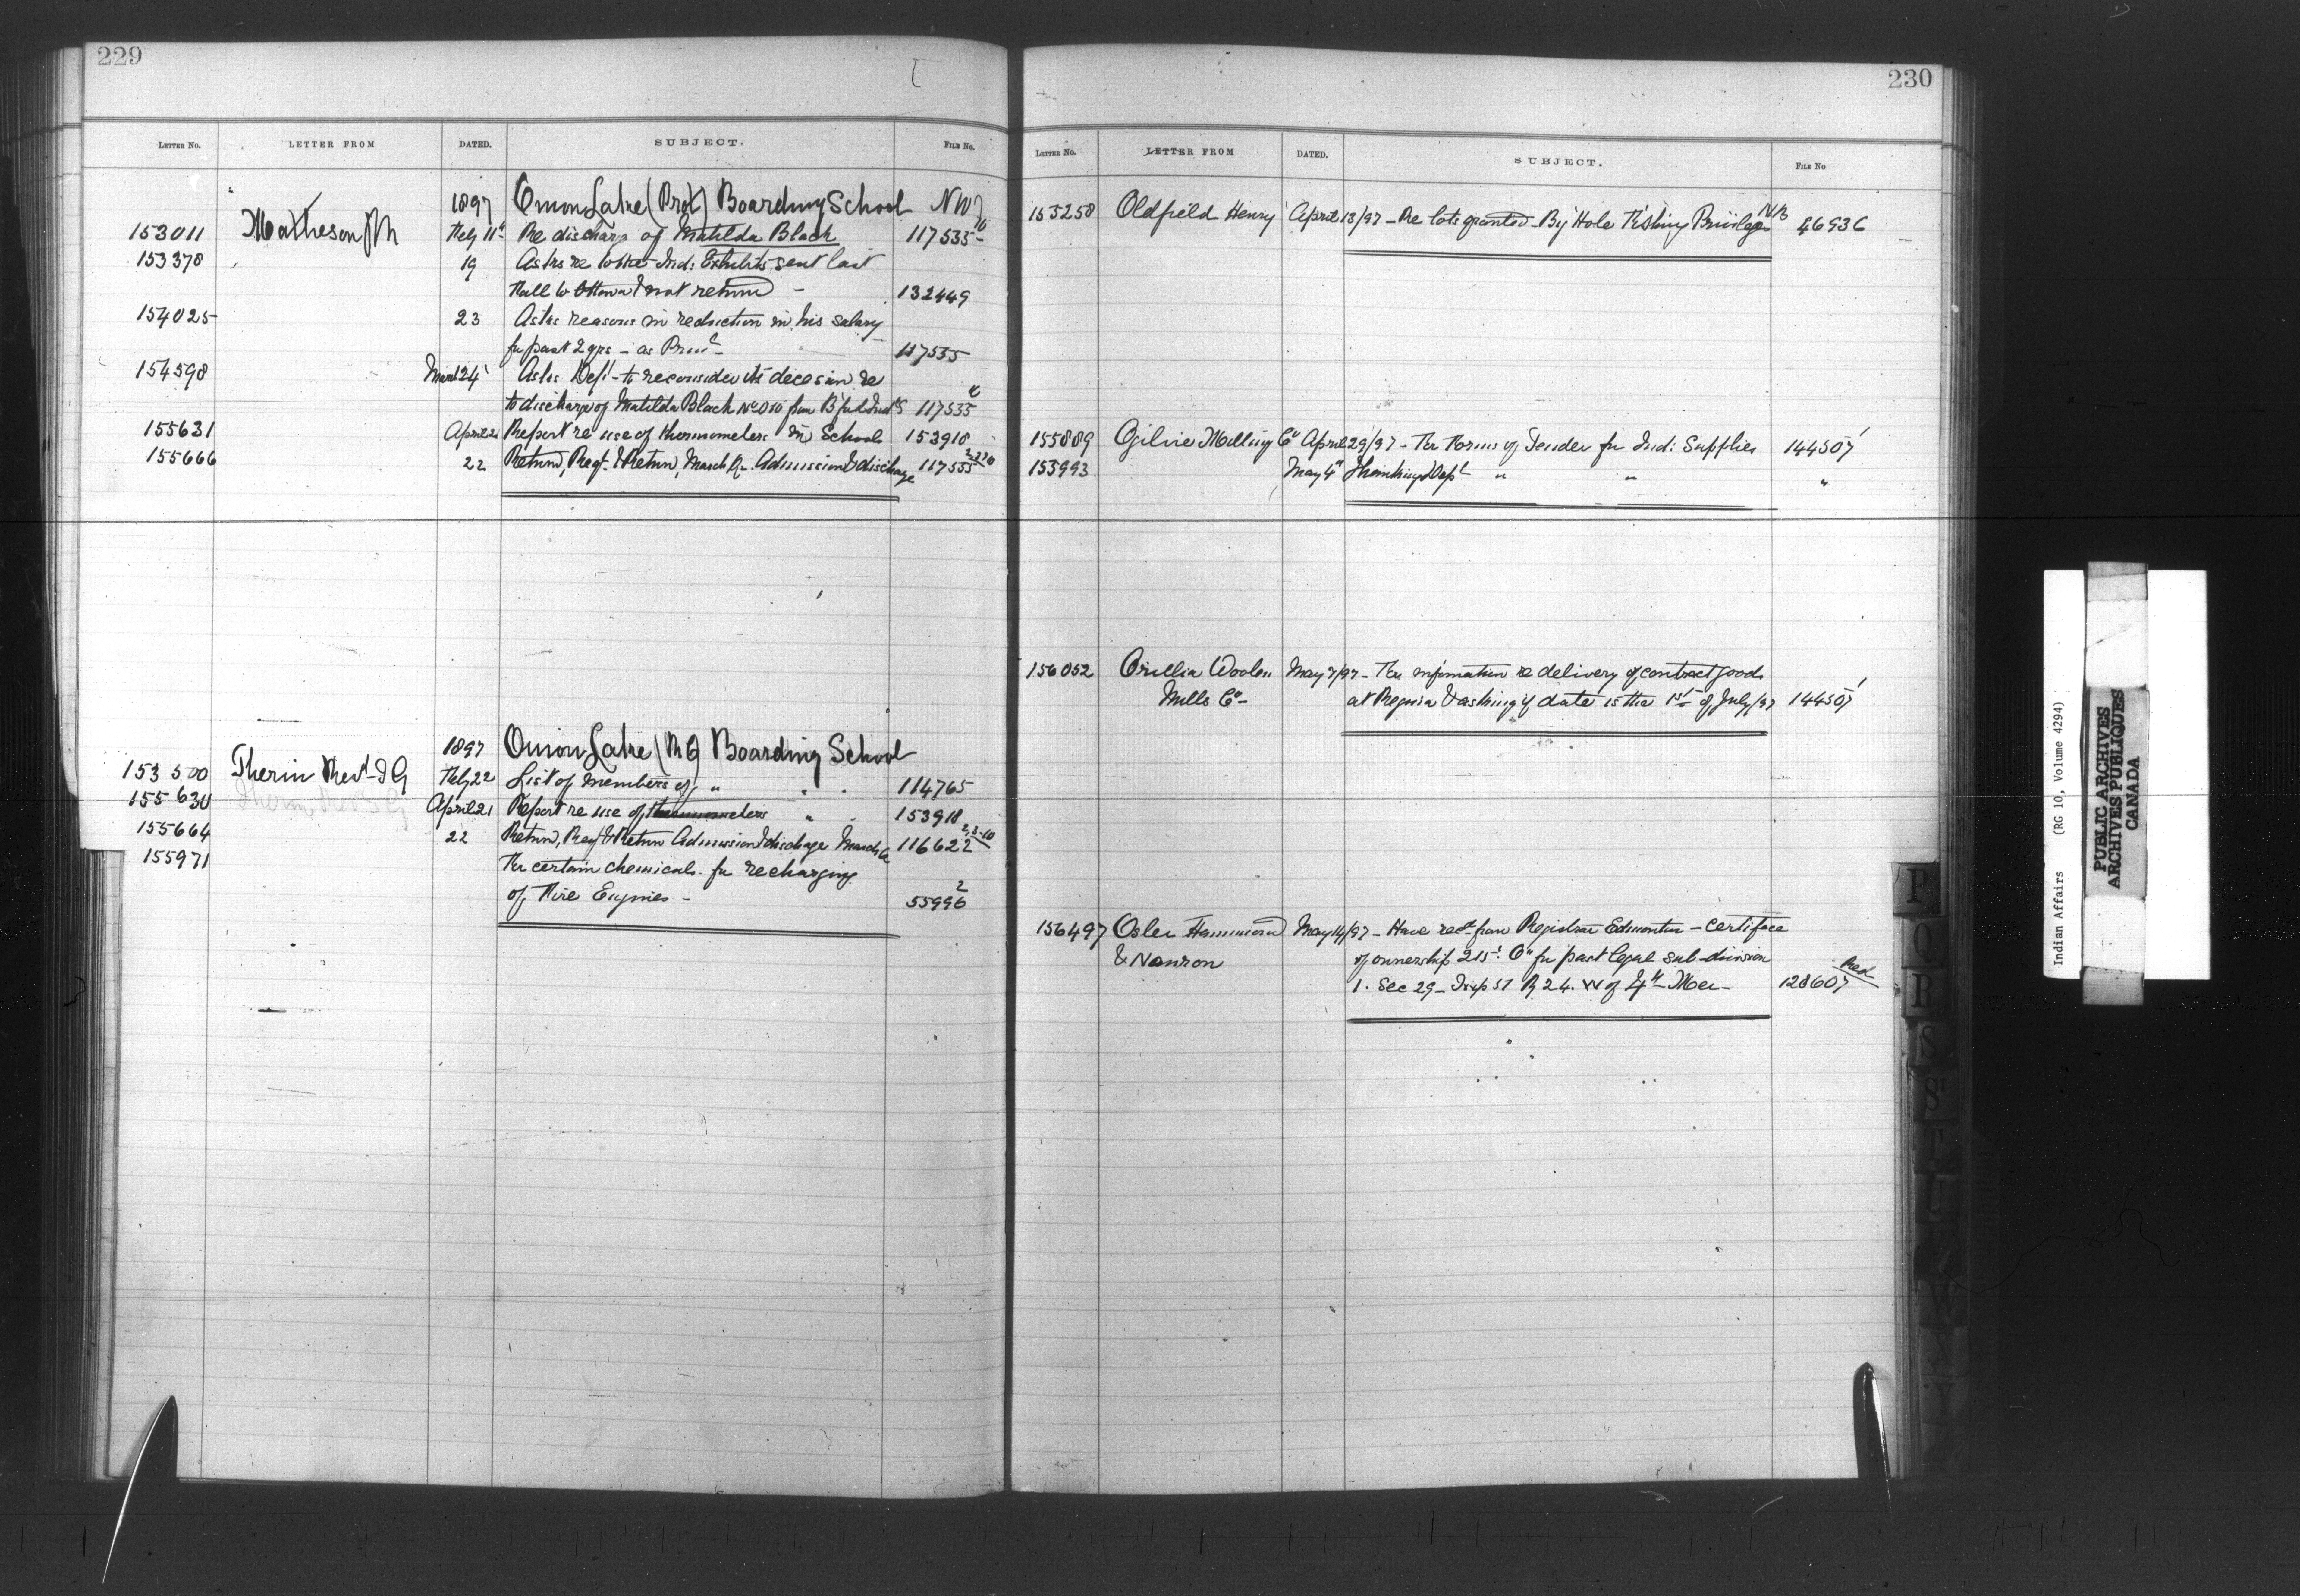 229
LETTER NO. LETTER FROM DATED. SUBJECT. FILE NO.
1897 Onion Lake (Prot) Boarding School NWT
153011 Matheson JR Feby 11th Re discharge of Matilda Black 117535-10
153378 19 Asks re Ind: Exhibits sent last
Fall to Ottawa & not returned - 132449
154025 23 Asks reasons in reduction in his salary
for past 2 yrs - as Prinl - 117535
154598 March 24 Asks Dept - to reconsider its decision re
to discharge of Matilda Black No 010 from 117535
155631 April 21 Report re use of thermometers in School 153918
155666 22 Return, Reqt & Return, March Qr. Admission & discharge 117535
1897 Onion Lake (RC) Boarding School
153500 Therien Revd J G Feby 22 List of members of " " " 114765
155630 April 21 Report re use of thermometers " " 153918
155664 22 Return, Reqt & Return Admission & discharge March Qr 116622 2,3-10
155971 For certain chemicals for recharging
of Fire Engines - 55996 2
230
LETTER NO. LETTER FROM DATED. SUBJECT. FILE NO
153258 Oldfield Henry April 13/97 - Re lots granted - By Hole Fishing Privileges NB 46936
155889 Ogilvie Milling Co April 29/97 - For Forms of Tender for Ind: Supplies 144507 1
153993 May 4th Thanking Dept " " "
156052 Orillia Woolen May 7/97 - For information re delivery of contract goods
Mills Co - at Regina & asking if date is the 1st of July/97 144507 1
156497 Osler Hammond May 14/97 - Have recd from Registrar Edmonton - certificate
& Nanton of ownership for part legal sub-division
1. Sec 29 - Twp 51 R 24. W of 4th Mer - 128607 Red
P
Q
R
S
S
T
U
V
W
Y
Indian Affairs (RG 10, Volume 4294)
PUBLIC ARCHIVES
ARCHIVES PUBLIQUES
CANADA